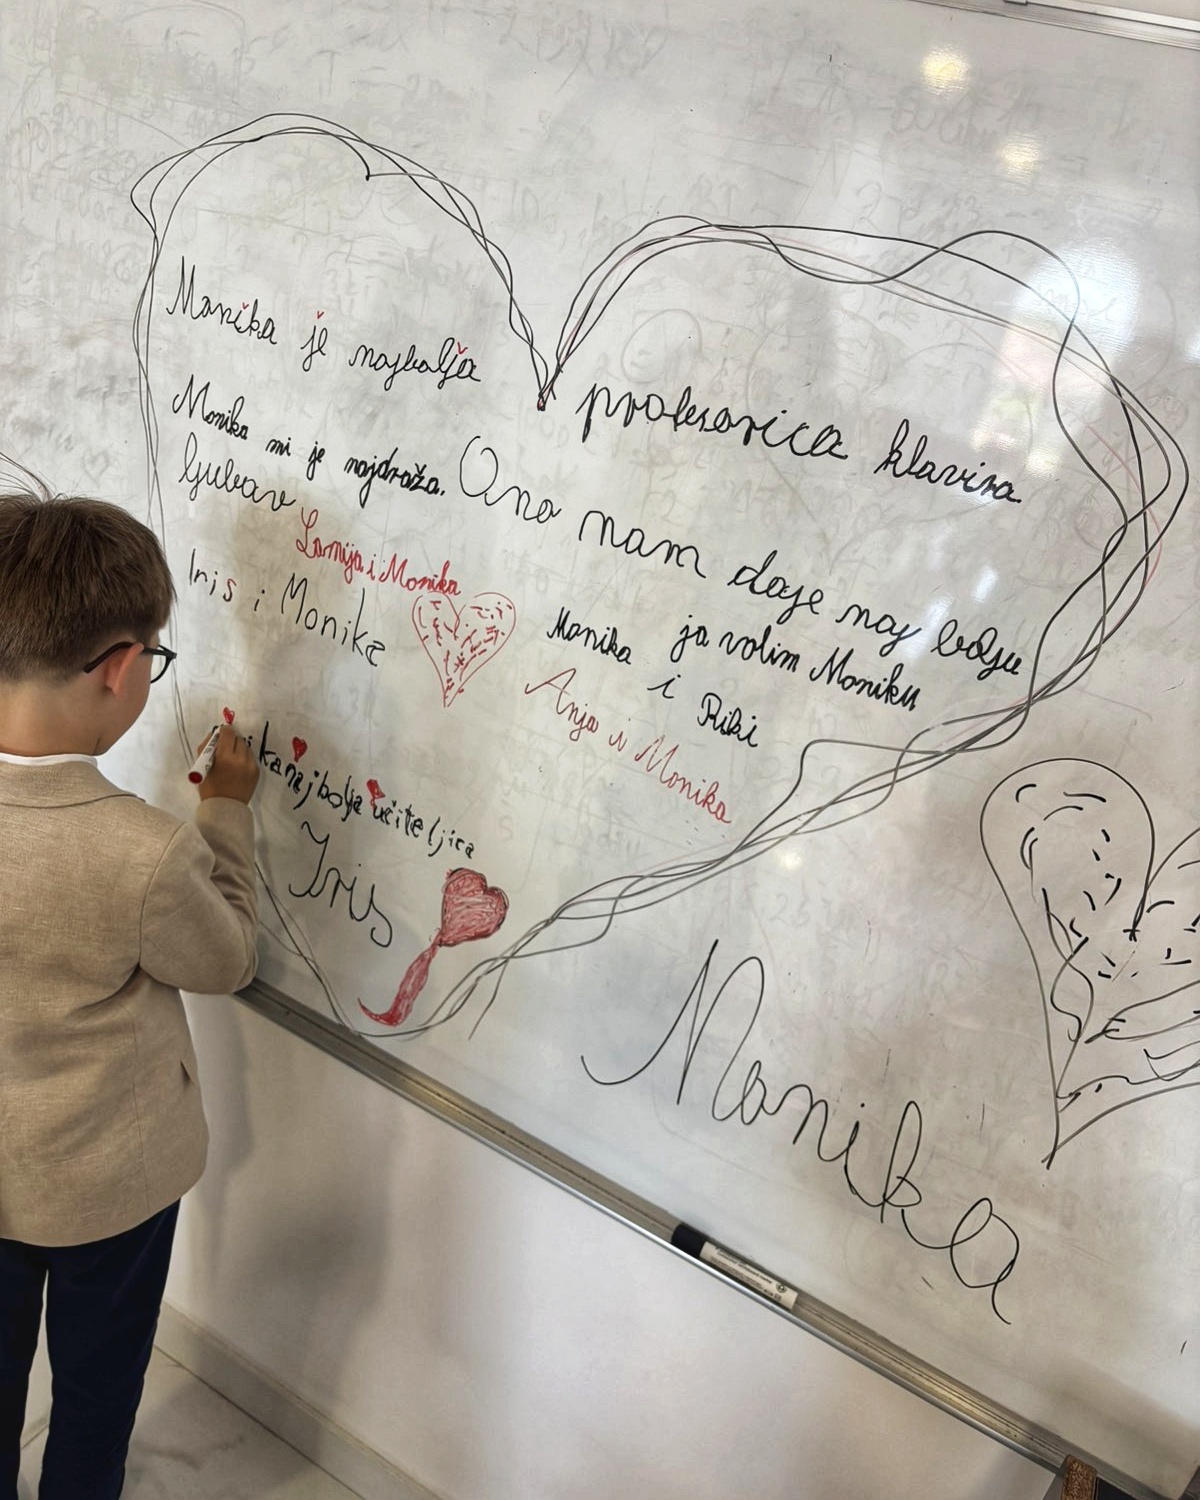 Monika je najbolja profesorica klavira
Monika mi je najdraža. Ona nam daje naj bolju
ljubav
Lamija i Monika
Iris i Monika
ja volim Moniku
Monika i Riki
Anja i Monika
najbolja učiteljica
Iris
Monika